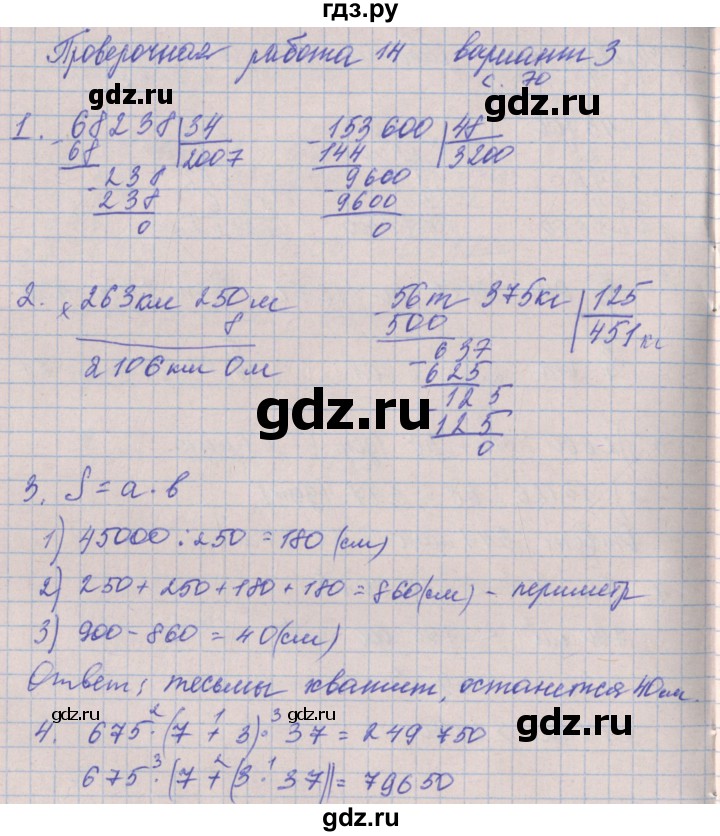 гдз.ру
Проверочная работа 14 вариант 3
с. 70
gdz.ru gdz.ru
1. - 68238 | 34 - 153600 | 48
68 2007 144 3200
- 238 - 9600
238 9600
0 0
gdz.ru gdz.ru
2. х 263км 250м - 56т 375кг | 125
8 500 451кг
2106км 0м - 637
625
gdz.ru
- 125
125
0
3. S = a · b
gdz.ru gdz.ru
1) 45000 : 250 = 180 (см)
2) 250 + 250 + 180 + 180 = 860(см) - периметр
3) 900 - 860 = 40(см)
gdz.ru
Ответ: тесьмы хватит, останется 40см.
gdz.ru gdz.ru
2 1 3
4. 675 · (7 + 3) · 37 = 249 750
3 2 1
675 · (7 + (3 · 37)) = 79650
gdz.ru